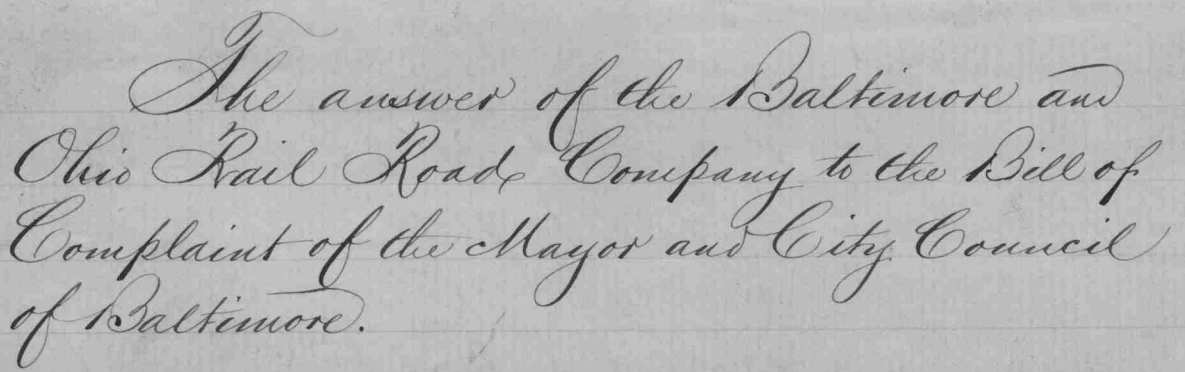 The answer of the Baltimore and
Ohio Rail Road Company to the Bill of
Complaint of the Mayor and City Council
of Baltimore.